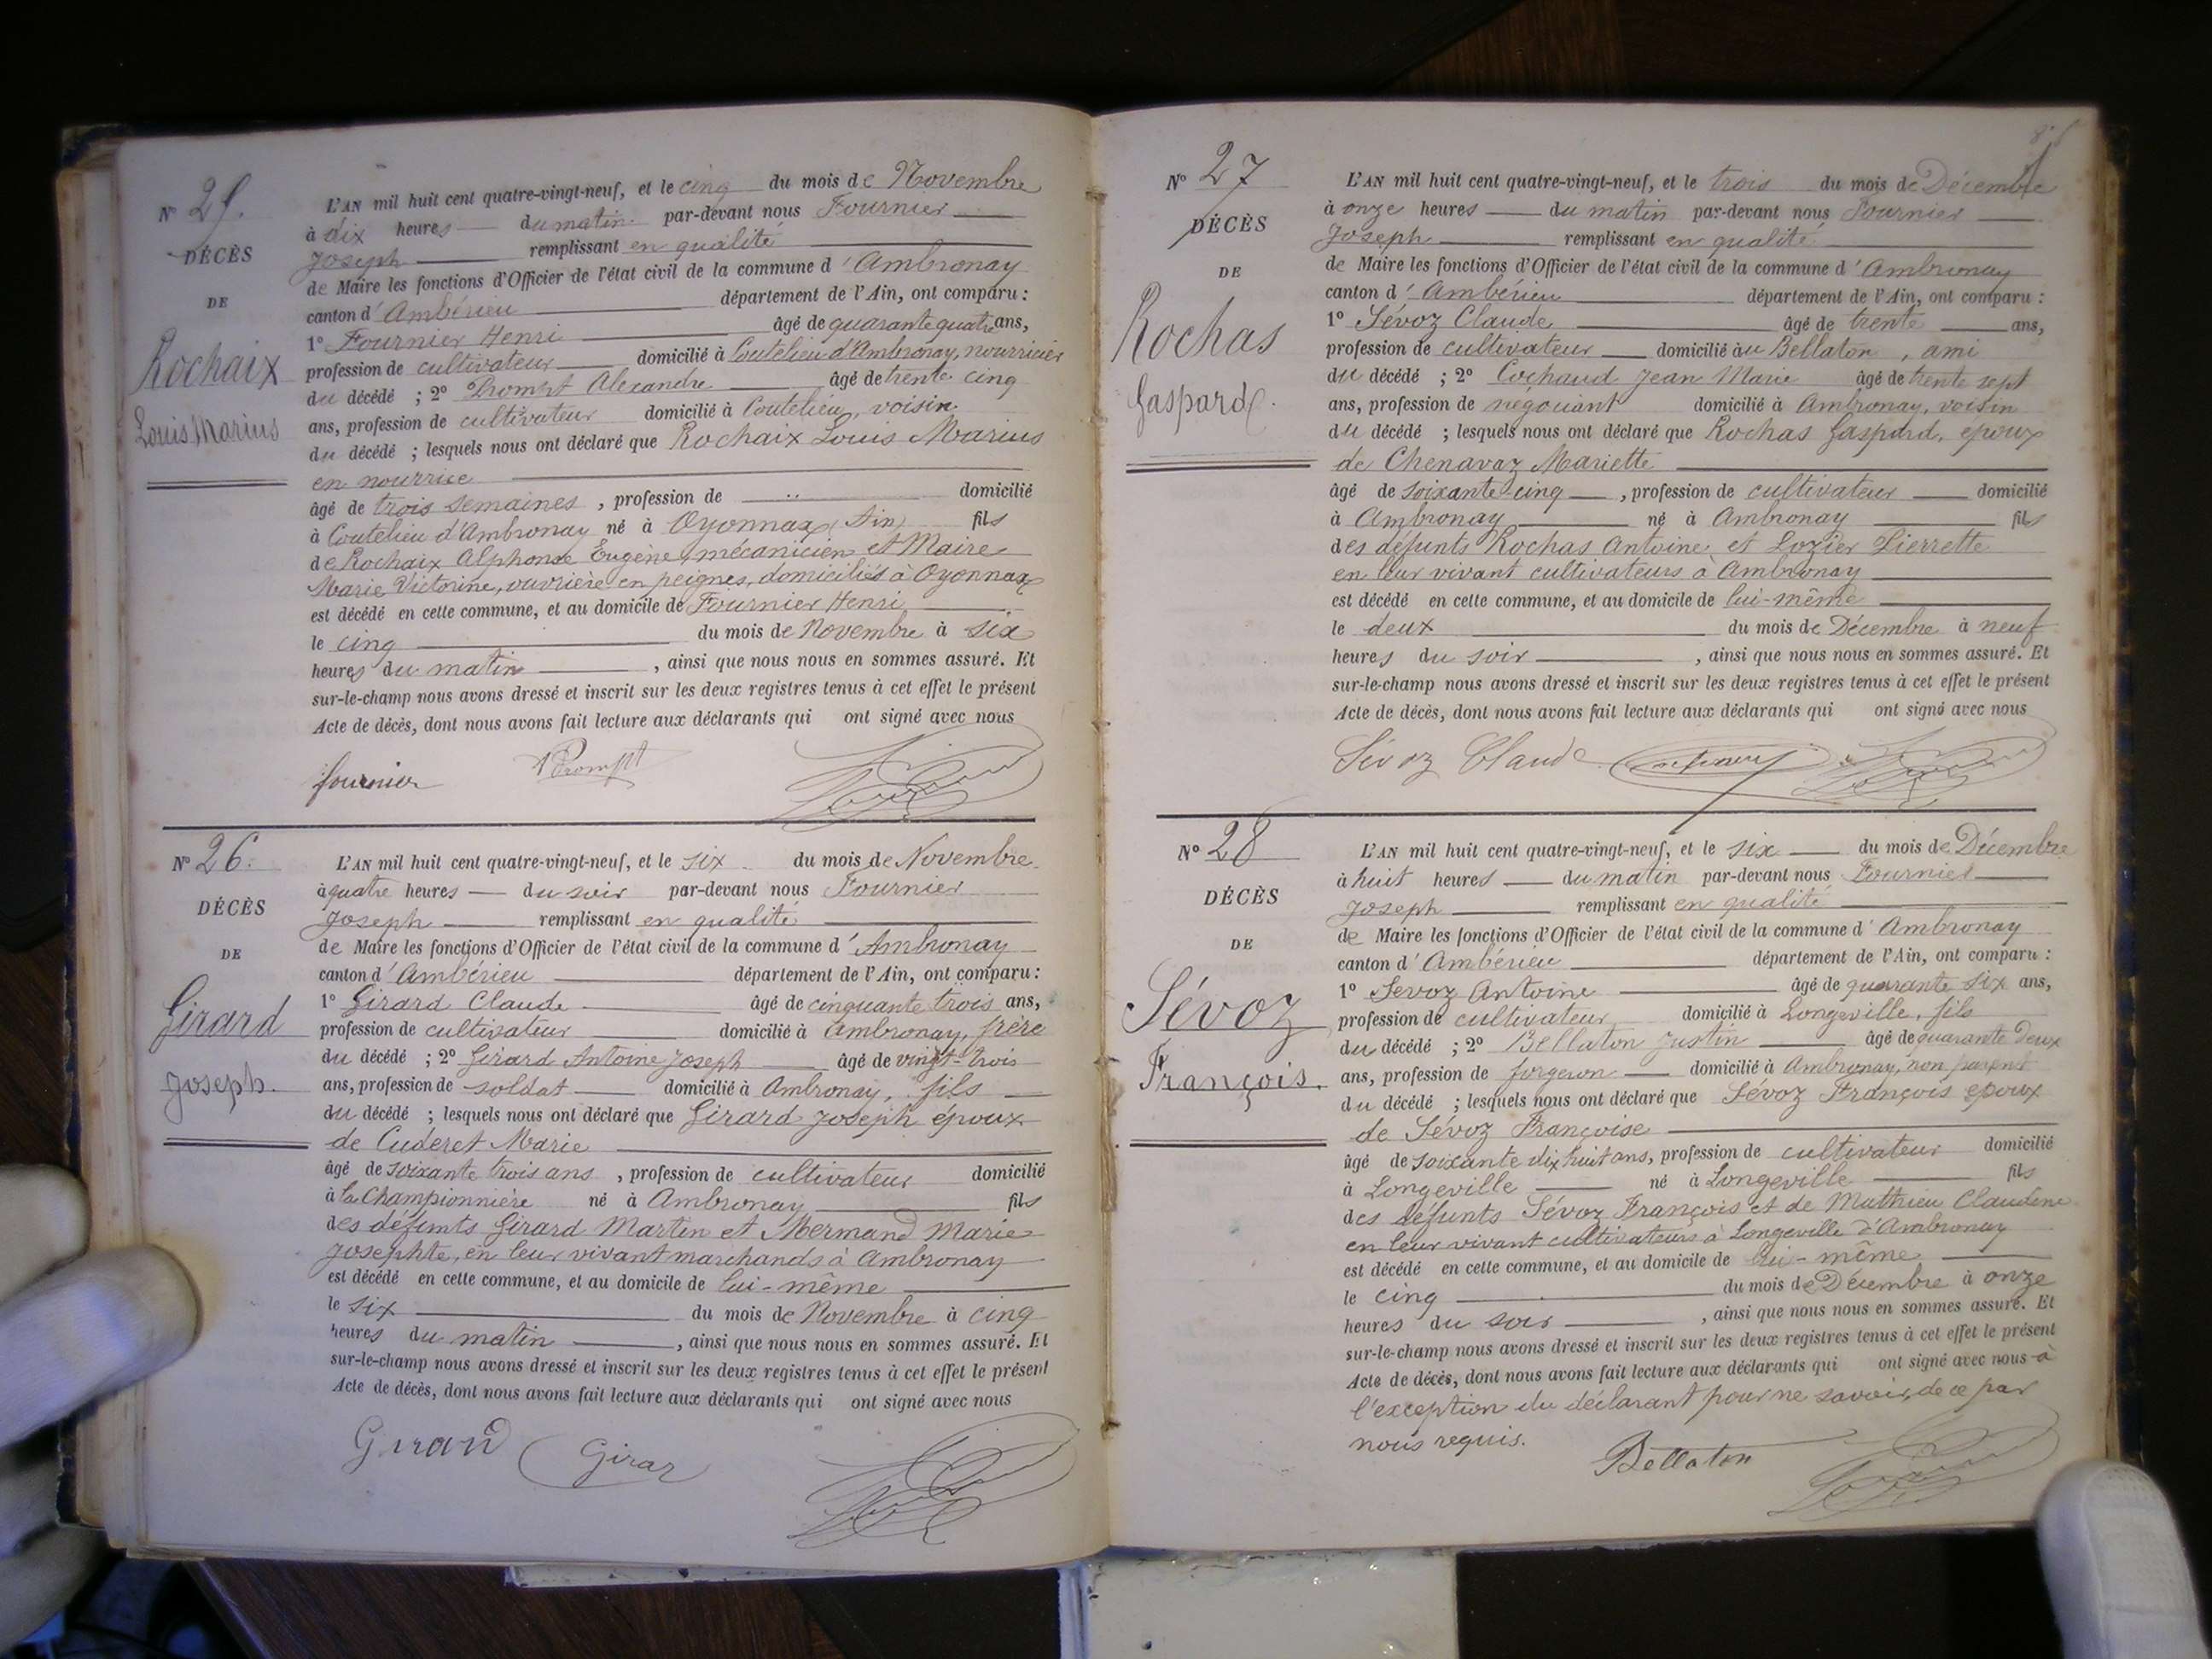 Nº 25.
DÉCÈS
DE
Rochaix
Louis Marius
L'AN mil huit cent quatre-vingt-neuf, et le cinq du mois de Novembre
à dix heures du matin par-devant nous Fournier
Joseph remplissant en qualité
de Maire les fonctions d'Officier de l'état civil de la commune d'Ambronay
canton d'Ambérieu département de l'Ain, ont comparu :
1º Fournier Henri âgé de quarante quatre ans,
profession de cultivateur domicilié à Coutelieu d'Ambronay, nourricier
du décédé ; 2º Prompt Alexandre âgé de trente cinq
ans, profession de cultivateur domicilié à Coutelieu, voisin
du décédé ; lesquels nous ont déclaré que Rochaix Louis Marius
en nourrice
âgé de trois semaines, profession de domicilié
à Coutelieu d'Ambronay né à Oyonnax (Ain) fils
de Rochaix Alphonse Eugène, mécanicien et Maire
Marie Victorine, ouvrière en peignes, domiciliés à Oyonnax
est décédé en cette commune, et au domicile de Fournier Henri
le cinq du mois de Novembre à six
heures du matin, ainsi que nous nous en sommes assuré. Et
sur-le-champ nous avons dressé et inscrit sur les deux registres tenus à cet effet le présent
Acte de décès, dont nous avons fait lecture aux déclarants qui ont signé avec nous
fournier Prompt
Nº 26.
DÉCÈS
DE
Girard
Joseph.
L'AN mil huit cent quatre-vingt-neuf, et le six du mois de Novembre
à quatre heures du soir par-devant nous Fournier
Joseph remplissant en qualité
de Maire les fonctions d'Officier de l'état civil de la commune d'Ambronay
canton d'Ambérieu département de l'Ain, ont comparu :
1º Girard Claude âgé de cinquante trois ans,
profession de cultivateur domicilié à Ambronay, frère
du décédé ; 2º Girard Antoine Joseph âgé de vingt-trois
ans, profession de soldat domicilié à Ambronay, fils
du décédé ; lesquels nous ont déclaré que Girard Joseph époux
de Cuderet Marie
âgé de soixante trois ans, profession de cultivateur domicilié
à la Championnière né à Ambronay fils
des défunts Girard Martin et Mermand Marie
Josephte, en leur vivant marchands à Ambronay
est décédé en cette commune, et au domicile de lui-même
le six du mois de Novembre à cinq
heures du matin, ainsi que nous nous en sommes assuré. Et
sur-le-champ nous avons dressé et inscrit sur les deux registres tenus à cet effet le présent
Acte de décès, dont nous avons fait lecture aux déclarants qui ont signé avec nous
Girard Girar
Nº 27
DÉCÈS
DE
Rochas
Gaspard.
L'AN mil huit cent quatre-vingt-neuf, et le trois du mois de Décembre
à onze heures du matin par-devant nous Fournier
Joseph remplissant en qualité
de Maire les fonctions d'Officier de l'état civil de la commune d'Ambronay
canton d'Ambérieu département de l'Ain, ont comparu :
1º Sévoz Claude âgé de trente ans,
profession de cultivateur domicilié au Bellaton, ami
du décédé ; 2º Cochaud Jean Marie âgé de trente sept
ans, profession de négociant domicilié à Ambronay, voisin
du décédé ; lesquels nous ont déclaré que Rochas Gaspard, époux
de Chenavaz Mariette
âgé de soixante-cinq, profession de cultivateur domicilié
à Ambronay né à Ambronay fils
des défunts Rochas Antoine et Lozier Pierrette
en leur vivant cultivateurs à Ambronay
est décédé en cette commune, et au domicile de lui-même
le deux du mois de Décembre à neuf
heures du soir, ainsi que nous nous en sommes assuré. Et
sur-le-champ nous avons dressé et inscrit sur les deux registres tenus à cet effet le présent
Acte de décès, dont nous avons fait lecture aux déclarants qui ont signé avec nous
Sévoz Claude
Nº 28
DÉCÈS
DE
Sévoz
François.
L'AN mil huit cent quatre-vingt-neuf, et le six du mois de Décembre
à huit heures du matin par-devant nous Fournier
Joseph remplissant en qualité
de Maire les fonctions d'Officier de l'état civil de la commune d'Ambronay
canton d'Ambérieu département de l'Ain, ont comparu :
1º Sevoz Antoine âgé de quarante six ans,
profession de cultivateur domicilié à Longeville, fils
du décédé ; 2º Bellaton Justin âgé de quarante deux
ans, profession de forgeron domicilié à Ambronay, non parent
du décédé ; lesquels nous ont déclaré que Sévoz François époux
de Sévoz Françoise
âgé de soixante dix huit ans, profession de cultivateur domicilié
à Longeville né à Longeville fils
des défunts Sévoz François et de Mathieu Claudine
en leur vivant cultivateurs à Longeville d'Ambronay
est décédé en cette commune, et au domicile de lui-même
le cinq du mois de Décembre à onze
heures du soir, ainsi que nous nous en sommes assuré. Et
sur-le-champ nous avons dressé et inscrit sur les deux registres tenus à cet effet le présent
Acte de décès, dont nous avons fait lecture aux déclarants qui ont signé avec nous à
l'exception du déclarant pour ne savoir, de ce par
nous requis.
Bellaton